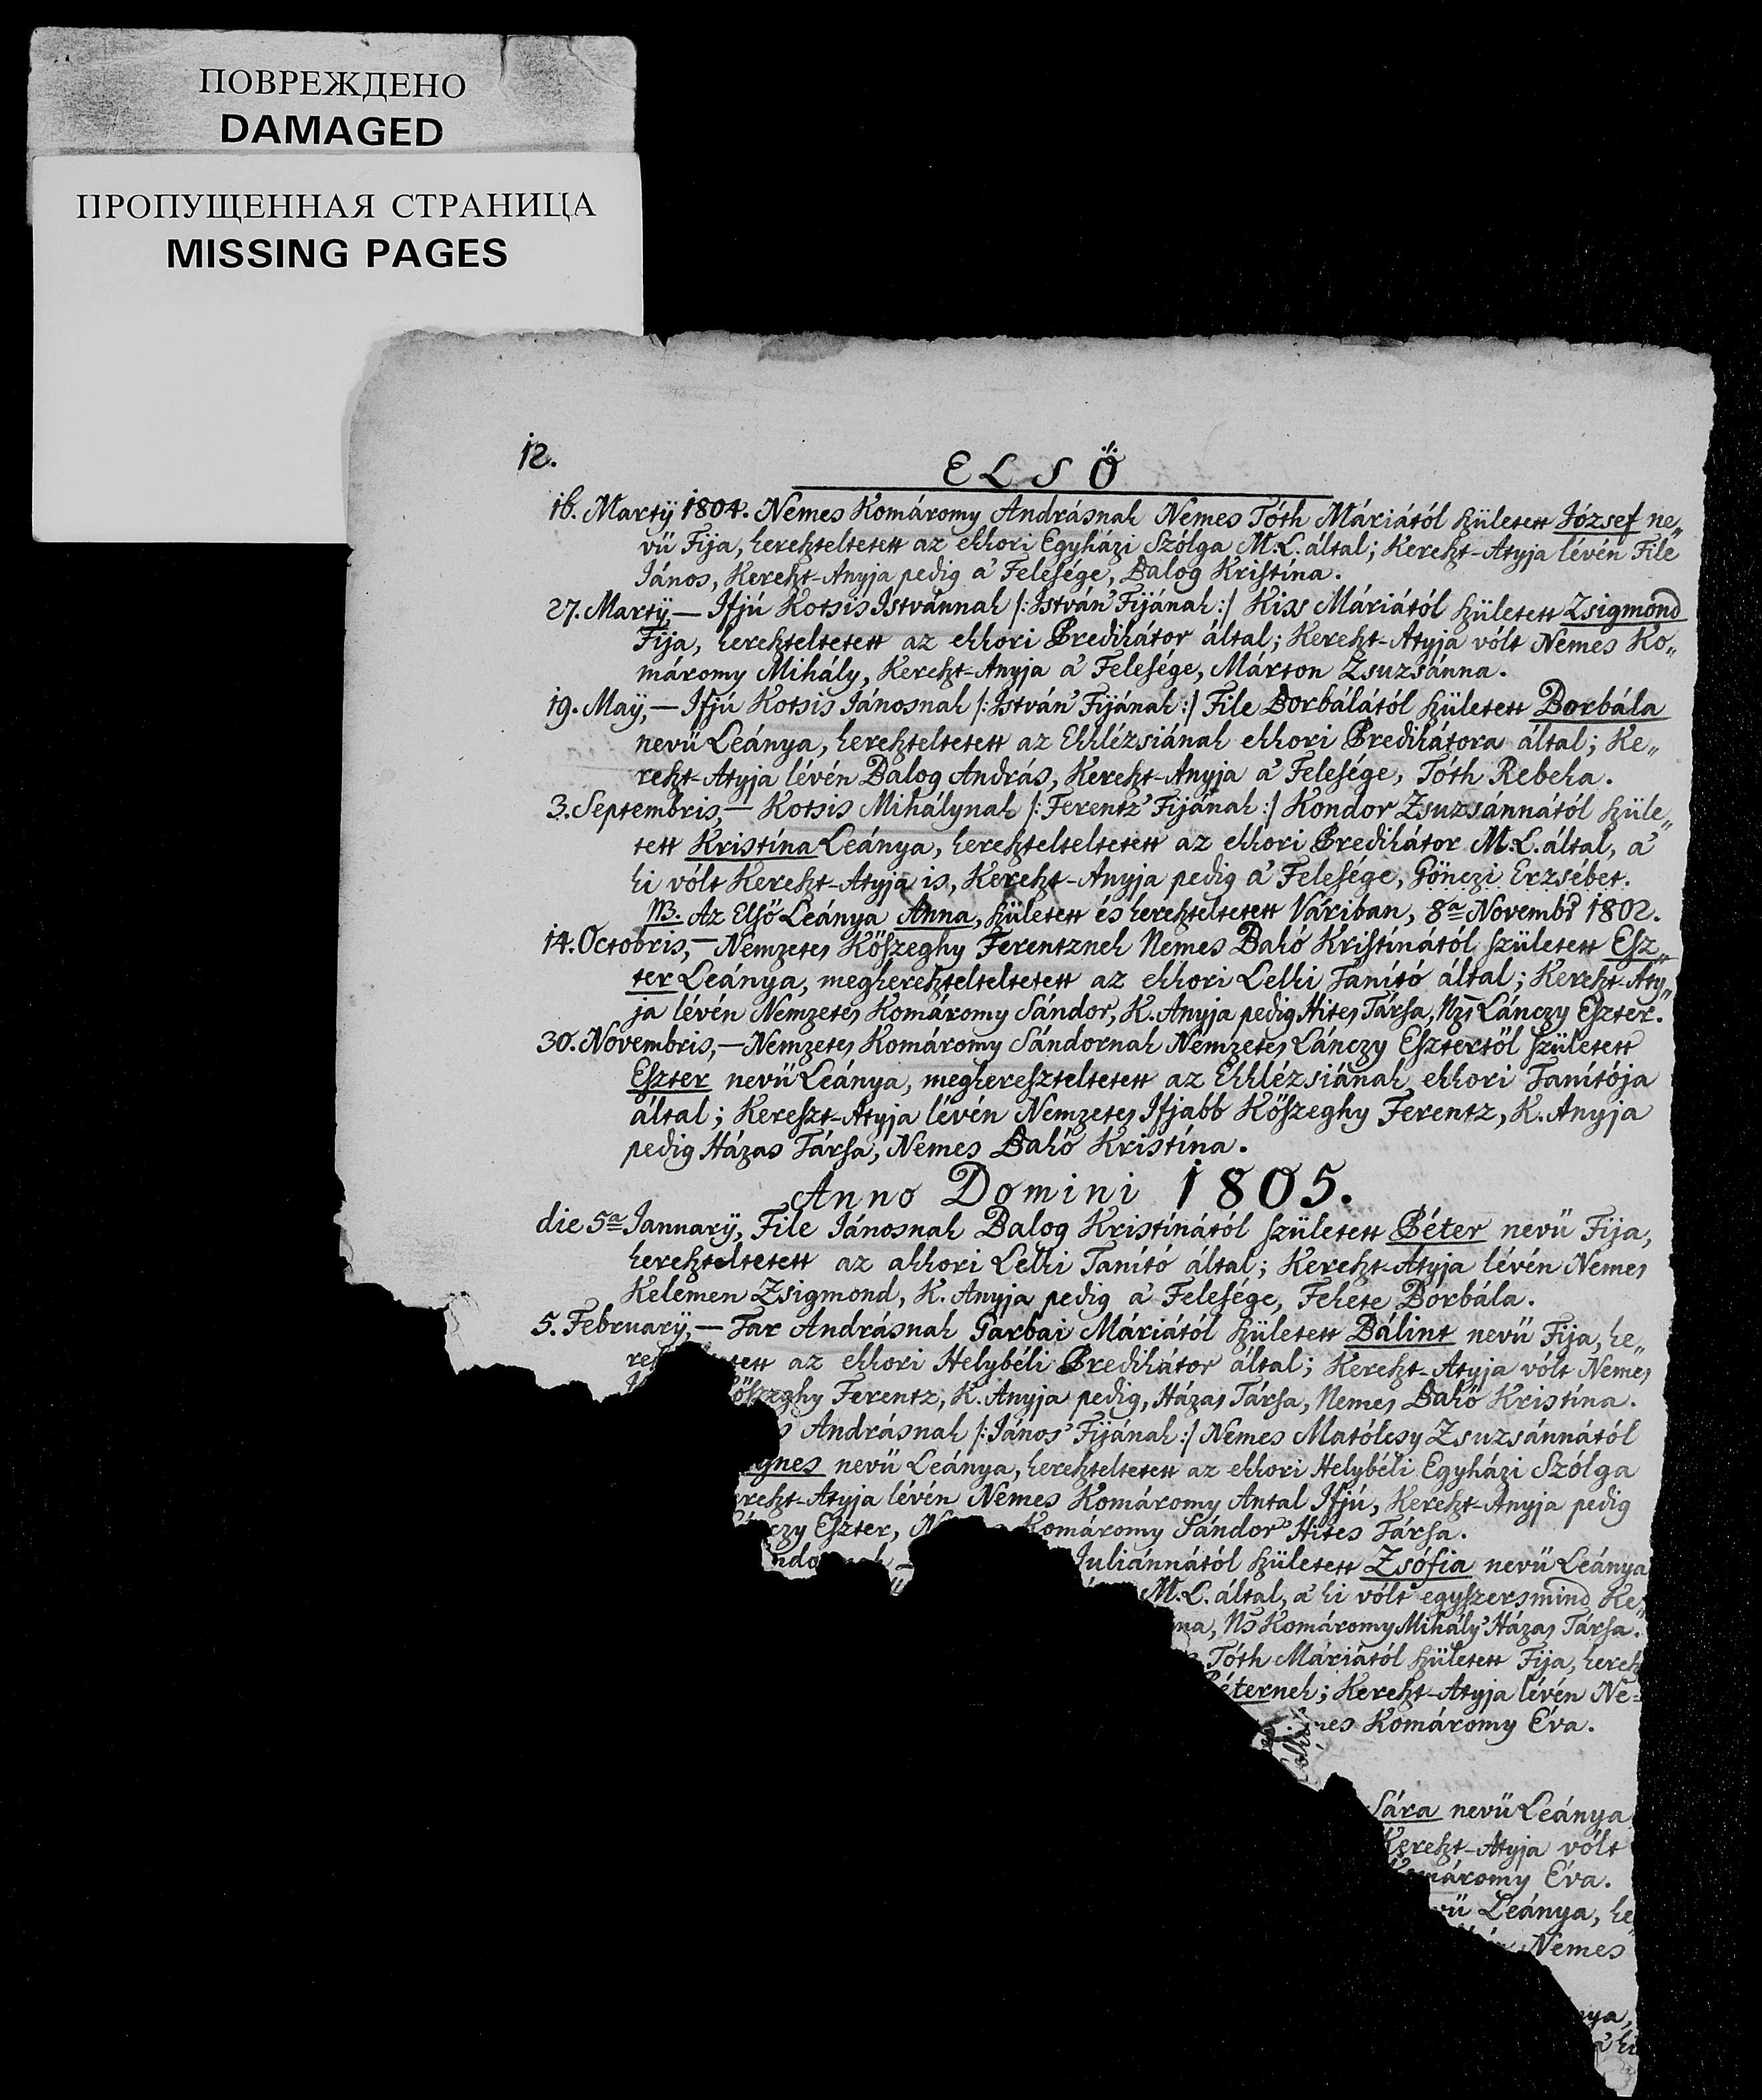 ПОВРЕЖДЕНО
DAMAGED
ПРОПУЩЕННАЯ СТРАНИЦА
MISSING PAGES
12.
ELSŐ
16. Martÿ 1804. Nemes Komáromy Andrásnak Nemes Tóth Máriától született József ne„
vü Fija, kereszteltetett az ekkori Egyházi Szólga M.L. által; Kereszt-Atyja lévén File
János, Kereszt-Anyja pedig a' Felesége, Balog Kristína.
27. Martÿ,— Ifjú Kotsis Istvánnak /:István' Fijának:/ Kiss Máriától született Zsigmond
Fija, kereszteltetett az ekkori Predikátor által; Kereszt-Atyja vólt Nemes Ko„
máromy Mihály, Kereszt-Anyja a' Felesége, Márton Zsuzsánna.
19. Maÿ,— Ifjú Kotsis Jánosnak /:István' Fijának:/ File Borbálától született Borbála
nevü Leánya, kereszteltetett az Ekklézsiának ekkori Predikátora által; Ke„
reszt-Atyja lévén Balog András, Kereszt-Anyja a' Felesége, Tóth Rebeka.
3. Septembris,— Kotsis Mihálynak /:Ferentz' Fijának:/ Kondor Zsuzsánnától szüle„
tett Kristína Leánya, keresztelteltetett az ekkori Predikátor M.L. által, a'
ki vólt Kereszt-Atyja is, Kereszt-Anyja pedig a' Felesége, Gönczi Erzsébet.
NB. Az Első Leánya Anna, született és kereszteltetett Váriban, 8a Novembr 1802.
14. Octobris,— Nemzetes Kőszeghy Ferentznek Nemes Bakó Kristínától született Esz„
ter Leánya, megkeresztelteltetett az ekkori Lelki Tanító által; Kereszt-Aty„
ja lévén Nemzetes Komáromy Sándor, K. Anyja pedig Hites Társa, Nzs Lánczy Eszter.
30. Novembris,— Nemzetes Komáromy Sándornak Nemzetes Lánczy Esztertől született
Eszter nevü Leánya, megkereszteltetett az Ekklézsiának ekkori Tanítója
által; Kereszt-Atyja lévén Nemzetes Ifjabb Kőszeghy Ferentz, K. Anyja
pedig Házas Társa, Nemes Bakó Kristína.
Anno Domini 1805.
die 5a Januarÿ, File Jánosnak Balog Kristínától született Péter nevü Fija,
kereszteltetett az akkori Lelki Tanító által; Kereszt-Atyja lévén Nemes
Kelemen Zsigmond, K. Anyja pedig a' Felesége, Fekete Borbála.
5. Februarÿ,— Tar Andrásnak Garbai Máriától született Bálint nevü Fija, ke„
az ekkori Helybéli Predikátor által; Kereszt-Atyja vólt Nemes
Kőszeghy Ferentz, K. Anyja pedig, Házas Társa, Nemes Bakó Kristína.
Andrásnak /:János' Fijának:/ Nemes Matólcsy Zsuzsánnától
Ágnes nevü Leánya, kereszteltetett az ekkori Helybéli Egyházi Szólga
Kereszt-Atyja lévén Nemes Komáromy Antal Ifjú, Kereszt-Anyja pedig
Eszter, Komáromy Sándor' Hites Társa.
Juliánnától született Zsófia nevü Leánya
M.L. által, a' ki vólt egyszersmind Ke„
na, Ns Komáromy Mihály' Házas Társa.
Tóth Máriától született Fija, keresz
Péternek; Kereszt-Atyja lévén Ne=
mes Komáromy Éva.
Sára nevü Leánya
Kereszt-Atyja vólt
Komáromy Éva.
vü Leánya, ke
Nemes
nya,
a' ki